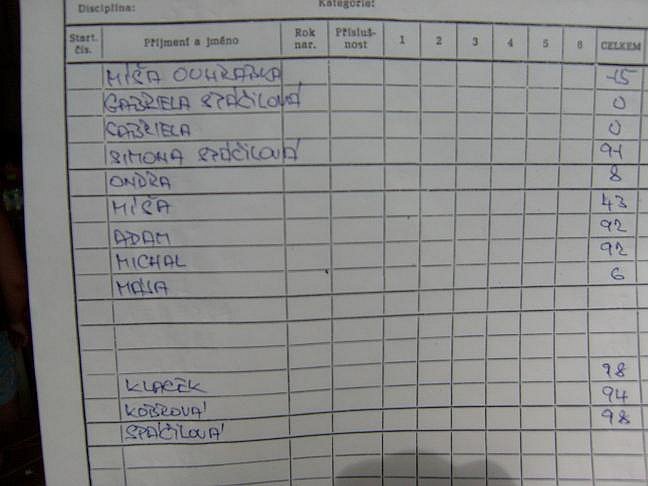 Disciplina: Kategorie:
Start. čís. Příjmení a jméno Rok nar. Přísluš-nost 1 2 3 4 5 6 CELKEM
MÍŠA -15
GABRIELA SPÁČILOVÁ 0
GABRIELA 0
SIMONA SPÁČILOVÁ 91
ONDRA 8
MÍŠA 43
ADAM 92
MICHAL 92
MÁJA 6
KLACEK 98
KOBROVÁ 94
SPÁČILOVÁ 98